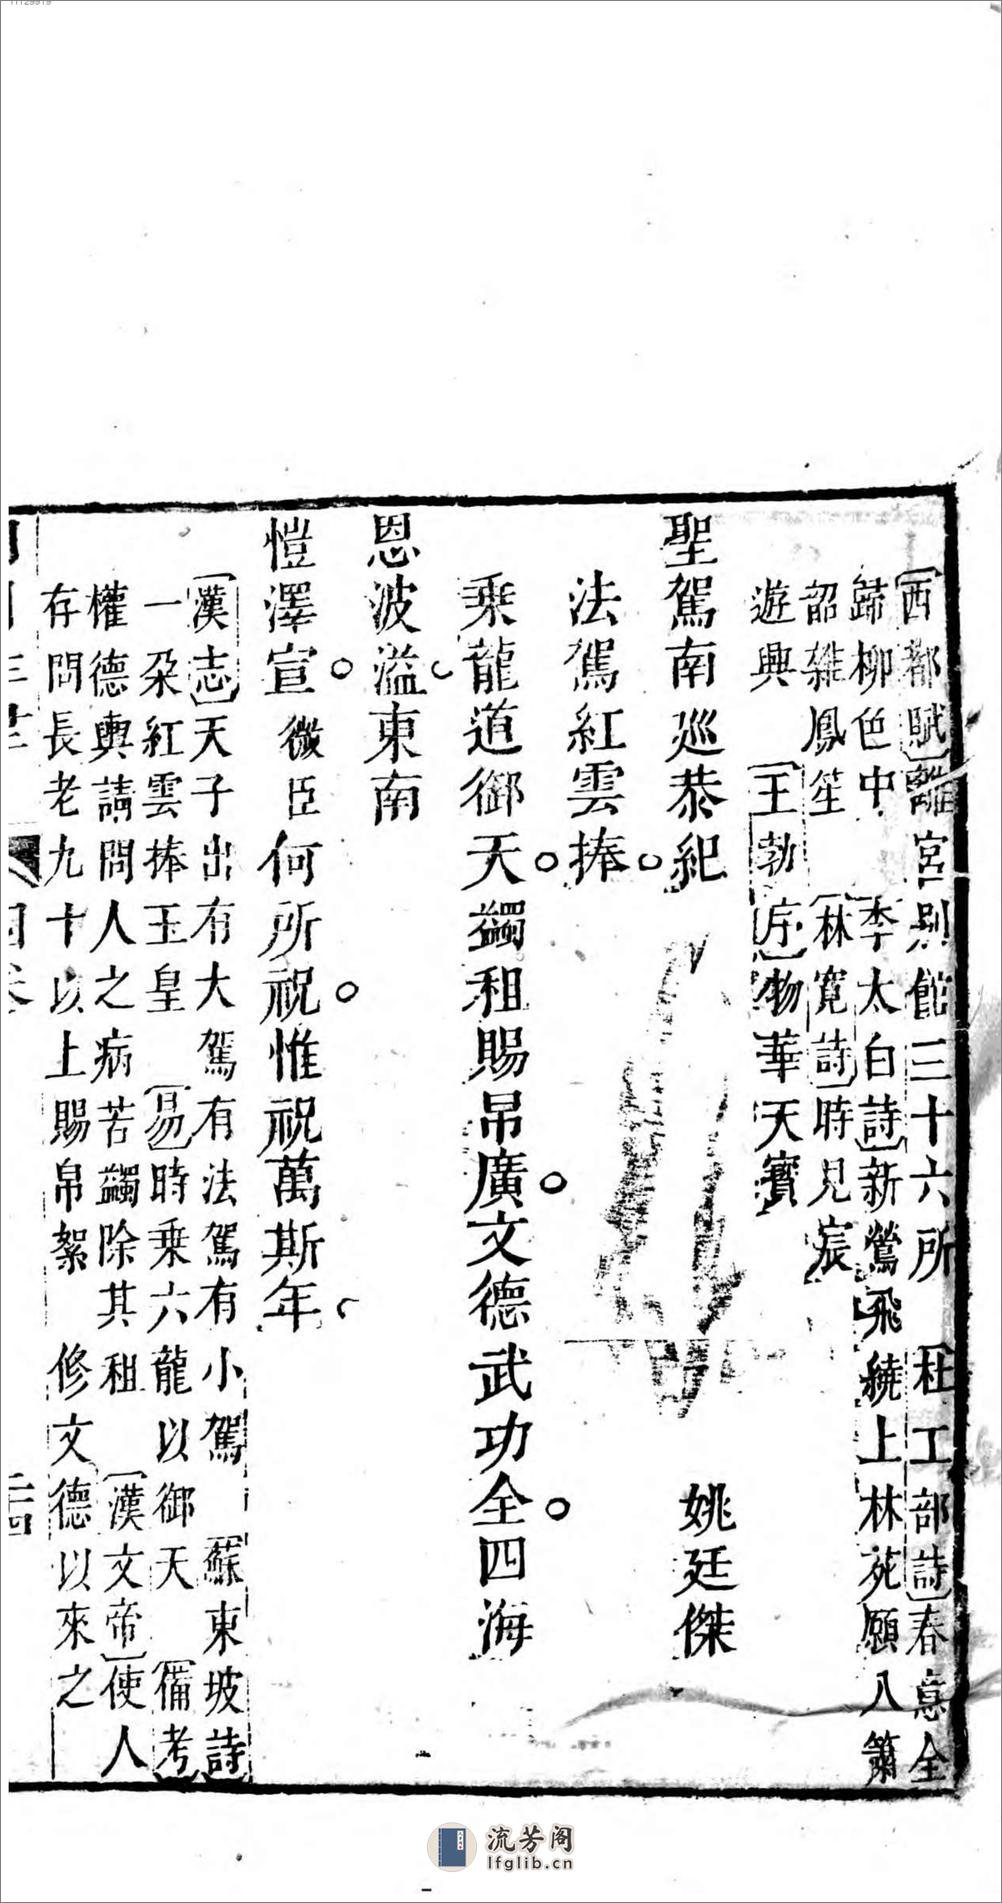 〔西都賦〕離宮別館三十六所 〔杜工部詩〕春意全
歸柳色中 李太白詩〕新鶯飛繞上林苑願入簫
韶雜鳳笙 〔林寬詩〕時見宸
遊興 〔王勃序〕物華天寶
聖駕南巡恭紀 姚廷傑
法駕紅雲捧
乘龍道御天蠲租賜帛廣文德武功全四海
恩波溢東南
愷澤宣微臣何所祝惟祝萬斯年
〔漢志〕天子出有大駕有法駕有小駕 〔蘇東坡詩〕
一朵紅雲捧玉皇 〔易〕時乘六龍以御天 〔備考〕
權德輿請問人之病苦蠲除其租 〔漢文帝〕使人
存問長老九十以上賜帛絮 修文德以來之
四卷
二十四
流芳阁
lfglib.cn